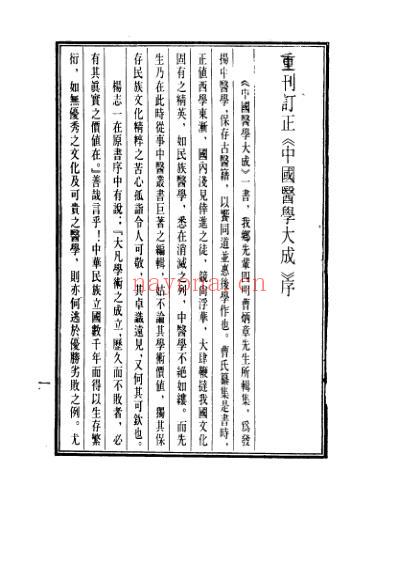 重刊訂正《中國醫學大成》序
《中國醫學大成》一書，我鄉先輩四明曹炳章先生所輯集，爲發
揚中醫學，保存古醫籍，以饗同道並惠後學作也。曹氏纂集是書時，
正値西學東漸，國內淺見倖進之徒，競尚浮華，大肆鞭撻我國文化
固有之精英，如民族醫學，悉在消滅之列，中醫學不絕如縷。而先
生乃在此時從事中醫叢書巨著之編輯，姑不論其學術價値，獨其保
存民族文化精粹之苦心孤詣令人可敬，其卓識遠見，又何其可欽也。
楊志一在原書序中有說：『大凡學術之成立，歷久而不敗者，必
有其眞實之價値在。』善哉言乎！中華民族立國數千年而得以生存繁
衍，如無優秀之文化及可貴之醫學，則亦何逃於優勝劣敗之例。尤
一
nayona.cn